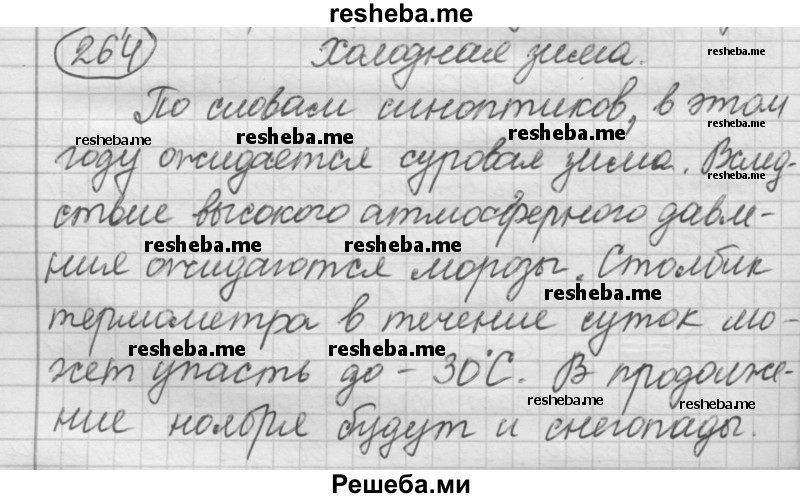 resheba.me
264 Холодная зима.
resheba.me
По словам синоптиков, в этом
resheba.me resheba.me resheba.me resheba.me
году ожидается суровая зима. Вслед-
resheba.me
ствие высокого атмосферного давле-
resheba.me resheba.me
ния ожидаются морозы. Столбик
resheba.me
термометра в течение суток мо-
resheba.me resheba.me
жет упасть до -30°С. В продолже-
resheba.me resheba.me
ние ноября будут и снегопады.
Решеба.ми